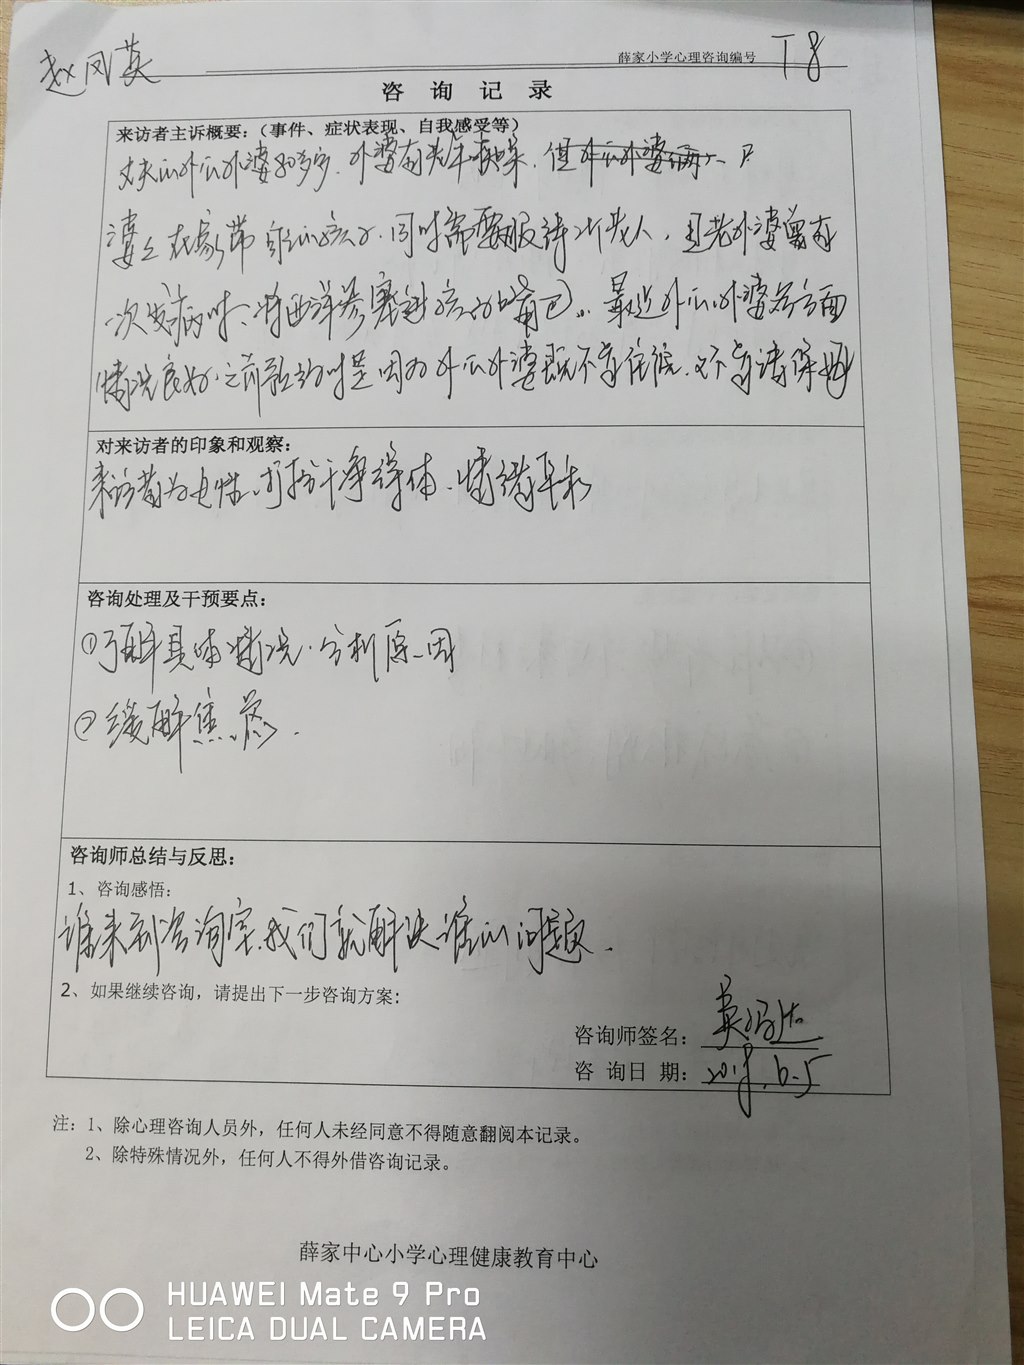 赵凤英
薛家小学心理咨询编号 T8
咨 询 记 录
来访者主诉概要：（事件、症状表现、自我感受等）
丈夫的外公外婆80多岁，外婆有老年痴呆，但外公外婆
婆婆在家带自己的孩子，同时需要服侍2个老人，且老外婆曾有
一次发病时，将西洋参塞进孩子的嘴巴。最近外公外婆各方面
情况良好，之前预约时是因为外公外婆既不肯住院，又不肯请保姆
对来访者的印象和观察：
来访者为女性，打扮干净得体，情绪平和
咨询处理及干预要点：
①了解具体情况，分析原因
②缓解焦虑.
咨询师总结与反思：
1、咨询感悟：
谁来到咨询室，我们就解决谁的问题.
2、如果继续咨询，请提出下一步咨询方案：
咨询师签名：
咨 询日 期： 6.5
注：1、除心理咨询人员外，任何人未经同意不得随意翻阅本记录。
2、除特殊情况外，任何人不得外借咨询记录。
薛家中心小学心理健康教育中心
HUAWEI Mate 9 Pro
LEICA DUAL CAMERA